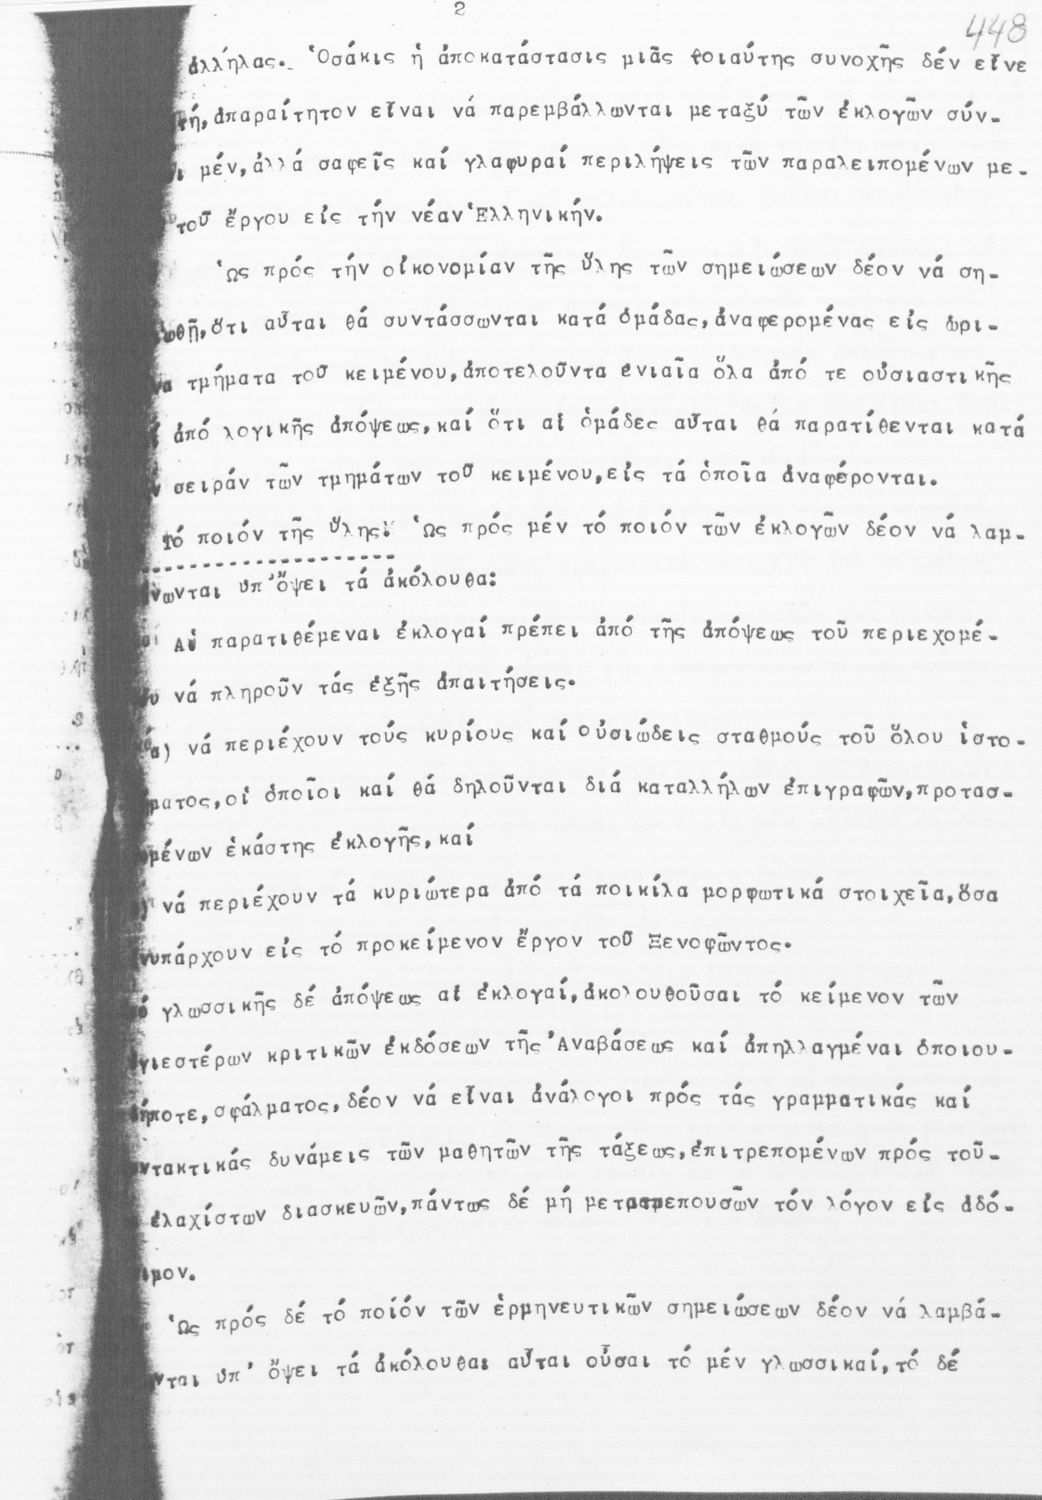 2
448
ἀλλήλας. Ὁσάκις ἡ ἀποκατάστασις μιᾶς τοιαύτης συνοχῆς δέν εἶνε
τή, ἀπαραίτητον εἶναι νά παρεμβάλλωνται μεταξύ τῶν ἐκλογῶν σύν-
ι μέν, ἀλλά σαφεῖς καί γλαφυραί περιλήψεις τῶν παραλειπομένων με-
τοῦ ἔργου εἰς τήν νέαν Ἑλληνικήν.
Ὡς πρός τήν οἰκονομίαν τῆς ὕλης τῶν σημειώσεων δέον νά ση-
ωθῇ, ὅτι αὗται θά συντάσσωνται κατά ὁμάδας, ἀναφερομένας εἰς ὡρι-
να τμήματα τοῦ κειμένου, ἀποτελοῦντα ἐνιαῖα ὅλα ἀπό τε οὐσιαστικῆς
ί ἀπό λογικῆς ἀπόψεως, καί ὅτι αἱ ὁμάδες αὗται θά παρατίθενται κατά
ν σειράν τῶν τμημάτων τοῦ κειμένου, εἰς τά ὁποῖα ἀναφέρονται.
Τό ποιόν τῆς ὕλης. Ὡς πρός μέν τό ποιόν τῶν ἐκλογῶν δέον νά λαμ-
νωνται ὑπ' ὄψει τά ἀκόλουθα:
Αἱ παρατιθέμεναι ἐκλογαί πρέπει ἀπό τῆς ἀπόψεως τοῦ περιεχομέ-
υ νά πληροῦν τάς ἑξῆς ἀπαιτήσεις.
α) νά περιέχουν τούς κυρίους καί οὐσιώδεις σταθμούς τοῦ ὅλου ἱστο-
ματος, οἱ ὁποῖοι καί θά δηλοῦνται διά καταλλήλων ἐπιγραφῶν, προτασ-
μένων ἑκάστης ἐκλογῆς, καί
νά περιέχουν τά κυριώτερα ἀπό τά ποικίλα μορφωτικά στοιχεῖα, ὅσα
νυπάρχουν εἰς τό προκείμενον ἔργον τοῦ Ξενοφῶντος.
ό γλωσσικῆς δέ ἀπόψεως αἱ ἐκλογαί, ἀκολουθοῦσαι τό κείμενον τῶν
γιεστέρων κριτικῶν ἐκδόσεων τῆς Ἀναβάσεως καί ἀπηλλαγμέναι ὁποιου-
δήποτε, σφάλματος, δέον νά εἶναι ἀνάλογοι πρός τάς γραμματικάς καί
ντακτικάς δυνάμεις τῶν μαθητῶν τῆς τάξεως, ἐπιτρεπομένων πρός τοῦ-
ἐλαχίστων διασκευῶν, πάντως δέ μή μετατρεπουσῶν τόν λόγον εἰς ἀδό-
ιμον.
Ὡς πρός δέ τό ποίόν τῶν ἑρμηνευτικῶν σημειώσεων δέον νά λαμβά-
νται ὑπ' ὄψει τά ἀκόλουθα: αὗται οὖσαι τό μέν γλωσσικαί, τό δέ